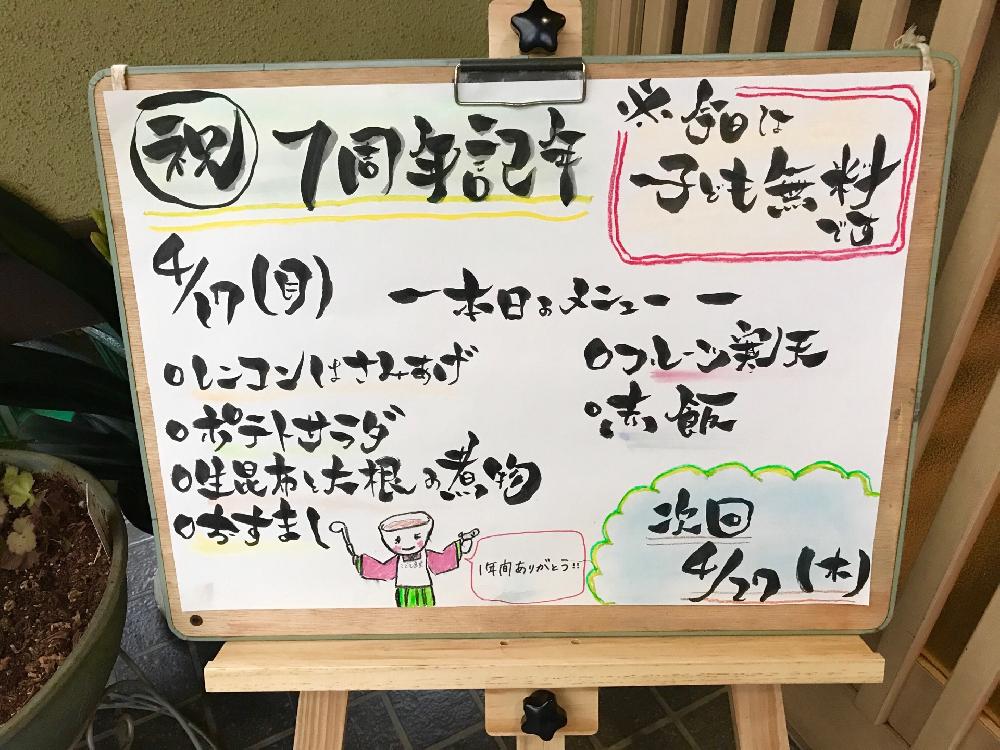 祝 7周年記年
※今日は
子ども無料
です
4/17(月)
ー本日のメニューー
○レンコンはさみあげ
○ポテトサラダ
○生昆布と大根の煮物
○おすまし
○フルーツ寒天
○赤飯
1年間ありがとう!!
次回
4/27(木)